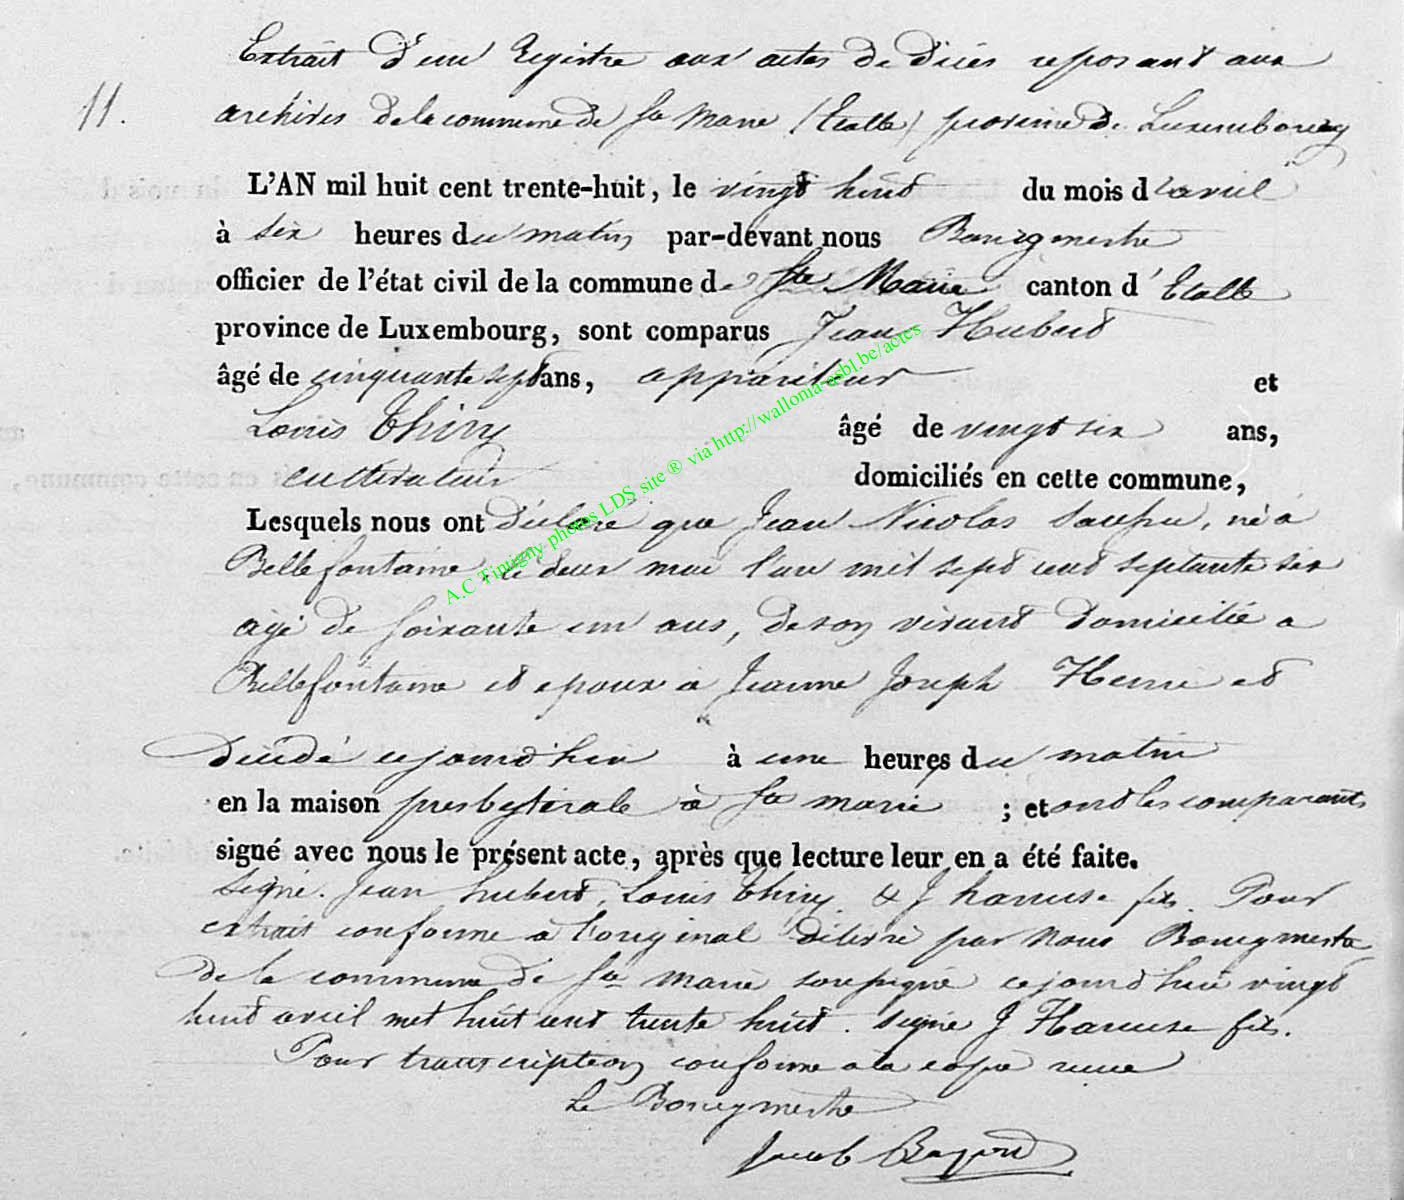 Extrait d'un Registre aux actes de décès reposant aux
11.
archives de la commune de Ste Marie (Etalle) province de Luxembourg
L'AN mil huit cent trente-huit, le vingt huit du mois d'avril
à six heures du matin par-devant nous Bourgmestre
officier de l'état civil de la commune de Ste Marie canton d'Etalle
province de Luxembourg, sont comparus Jean Hubert
âgé de cinquante sept ans, appariteur et
Louis Thiry âgé de vingt six ans,
cultivateur domiciliés en cette commune,
Lesquels nous ont déclaré que Jean Nicolas né à
Bellefontaine, le deux mai l'an mil sept cent septante six
agé de soixante un ans, de son vivant domicilié a
Bellefontaine et epoux a Jeanne Joseph et
décédé cejourd'hui à une heures du matin
en la maison presbytérale à Ste marie ; et ont les comparants
signé avec nous le présent acte, après que lecture leur en a été faite.
Signé. Jean hubert, Louis Thiry & J hanuse fils. Pour
extrait conforme a l'original délivré par nous Bourgmestre
de la commune de Ste Marie soussigné cejourd'hui vingt
huit avril mil huit cent trente huit. signé J Hanuse fils.
Pour transcription conforme a la copie
Le Bourgmestre
Jacob
A.C Tintigny photos LDS site ® via http://wallonia-asbl.be/actes